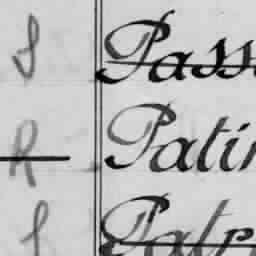 S Pass
R Patin
S Patr